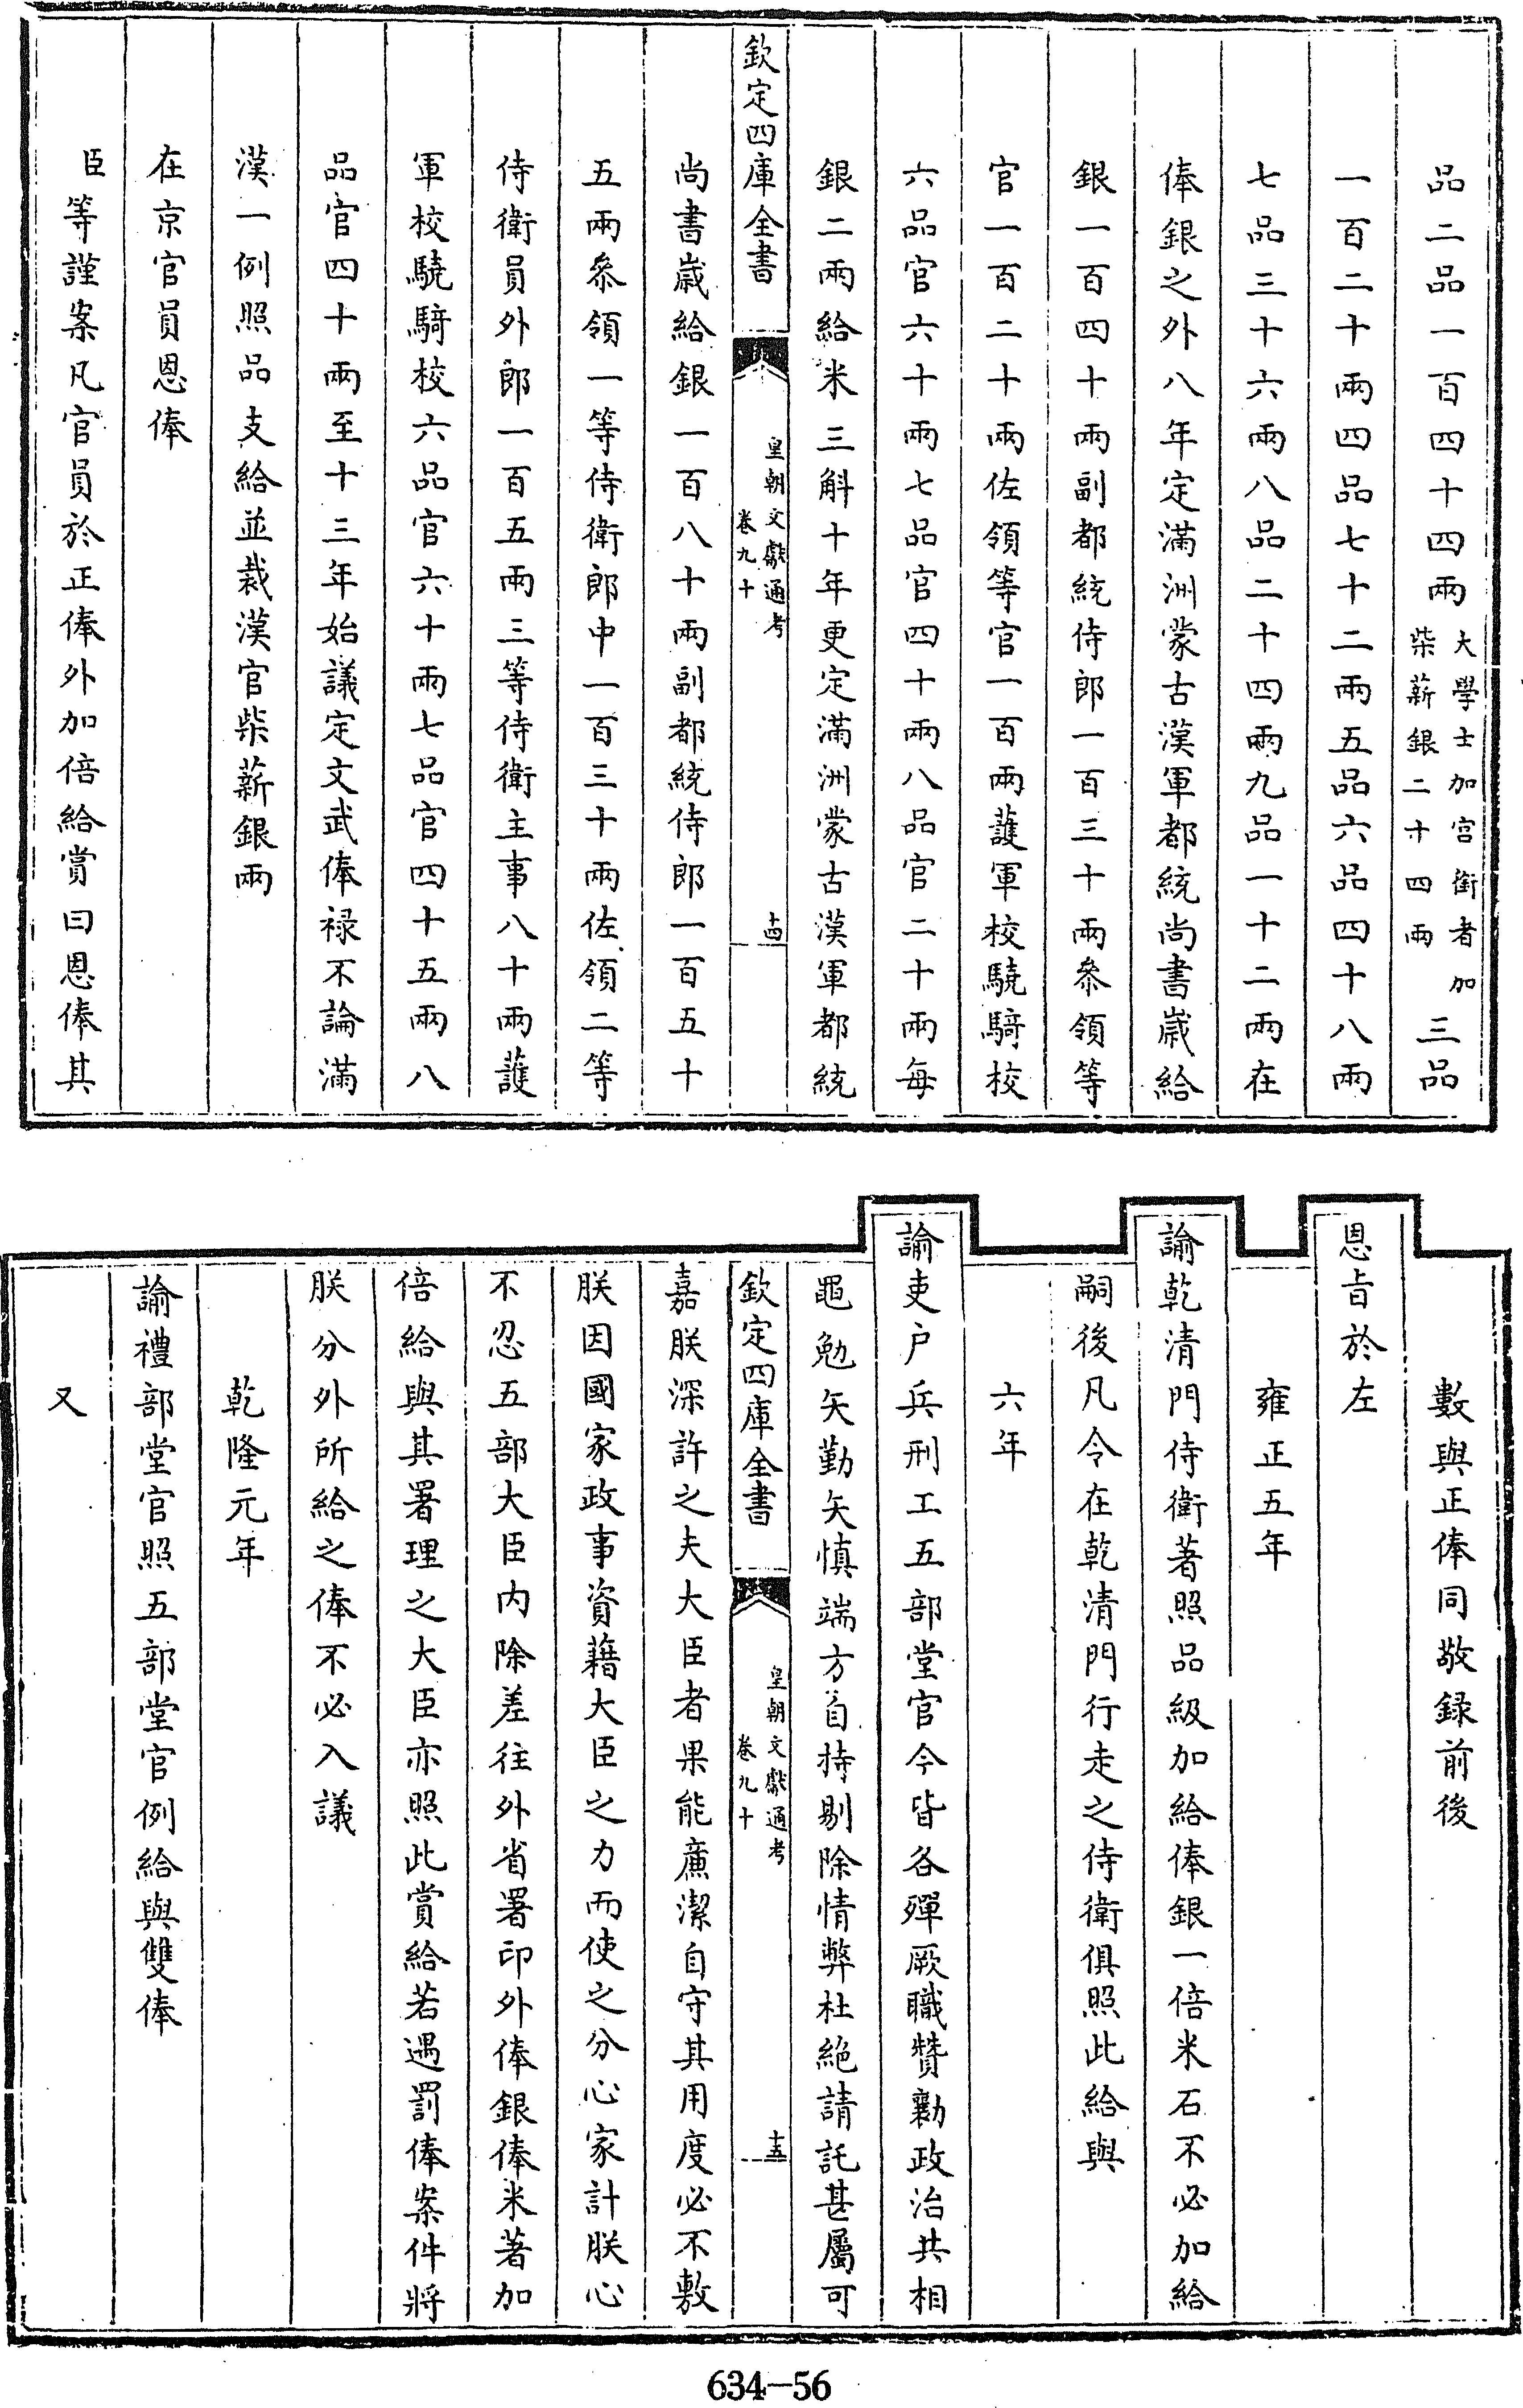 品二品一百四十四兩大學士加宫銜者加柴薪銀二十四兩三品
一百二十兩四品七十二兩五品六品四十八兩
七品三十六兩八品二十四兩九品一十二兩在
俸銀之外八年定滿洲蒙古漢軍都統尚書歲給
銀一百四十兩副都統侍郎一百三十兩叅領等
官一百二十兩佐領等官一百兩護軍校驍騎校
六品官六十兩七品官四十兩八品官二十兩每
銀二兩給米三斛十年更定滿洲蒙古漢軍都統
欽定四庫全書
皇朝文獻通考
卷九十
十四
尚書歲給銀一百八十兩副都統侍郎一百五十
五兩叅領一等侍衛郎中一百三十兩佐領二等
侍衛員外郎一百五兩三等侍衛主事八十兩護
軍校驍騎校六品官六十兩七品官四十五兩八
品官四十兩至十三年始議定文武俸禄不論滿
漢一例照品支給並裁漢官柴薪銀兩
在京官員恩俸
臣等謹案凡官員於正俸外加倍給賞曰恩俸其
數與正俸同敬録前後
恩㫖於左
雍正五年
諭乾清門侍衛著照品級加給俸銀一倍米石不必加給
嗣後凡令在乾清門行走之侍衛俱照此給與
六年
諭吏户兵刑工五部堂官今皆各殫厥職贊勷政治共相
黽勉矢勤矢慎端方自持剔除情弊杜絶請託甚屬可
欽定四庫全書
皇朝文獻通考
卷九十
十五
嘉朕深許之夫大臣者果能廉潔自守其用度必不敷
朕因國家政事資藉大臣之力而使之分心家計朕心
不忍五部大臣内除差往外省署印外俸銀俸米著加
倍給與其署理之大臣亦照此賞給若遇罰俸案件將
朕分外所給之俸不必入議
乾隆元年
諭禮部堂官照五部堂官例給與雙俸
又
634-56